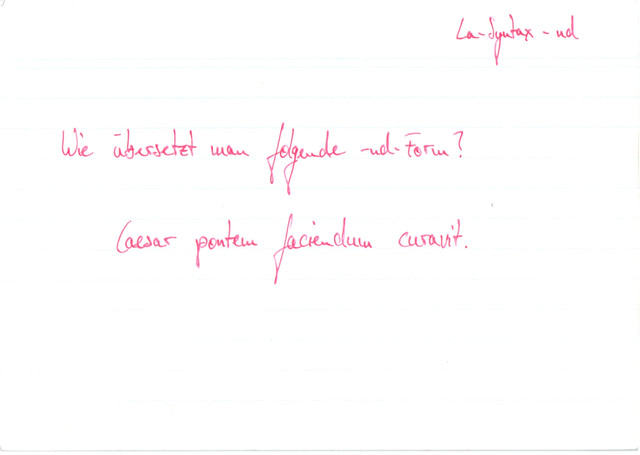 La-Syntax-nd
Wie übersetzt man folgende -nd-Form?
Caesar pontem faciendum curavit.